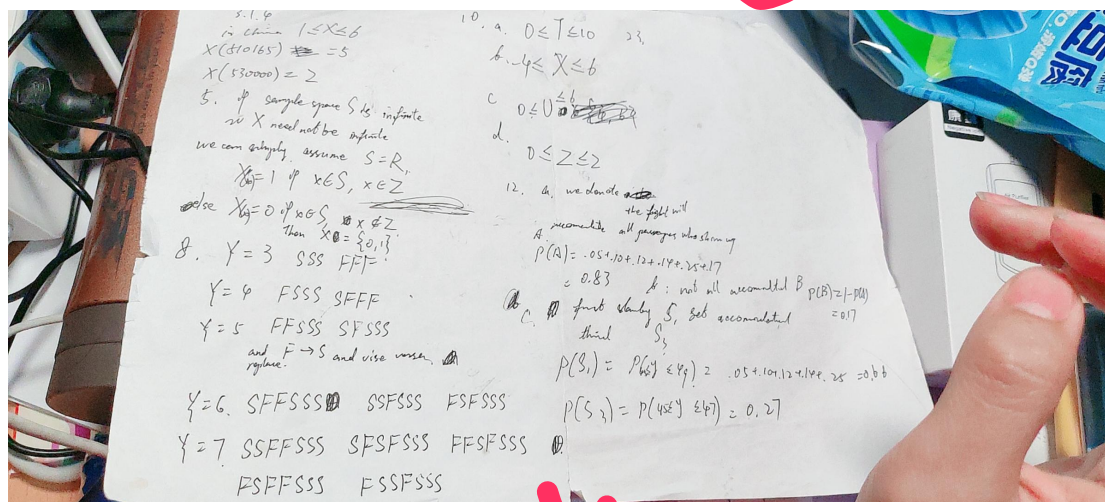 3.1.4
in china 1≤X≤6
X(510165) = 5
X(530000) = 2
5. if sample space S is infinite
X need not be infinite
we can simply assume S=R,
X(x)=1 if x∈S, x∈Z
else X(x)=0 if x∈S, x∉Z
Then X = {0,1}
8. Y=3 SSS FFF
Y=4 FSSS SFFF
Y=5 FFSSS SFSSS
and F→S and vise versa
replace.
Y=6. SFFSSS SSFSSS FSFSSS
Y=7 SSFFSSS SFSFSSS FFSFSSS
FSFFSSS FSSFSSS
10. a. 0≤T≤10
b. -4≤X≤6
c 0≤U≤6
d.
0≤Z≤2
12. a. we denote
the flight will
A accomodate all passengers who show up
P(A)= .05+.10+.12+.14+.25+.17
= 0.83
b: not all accomodated B P(B)=1-P(A)
=0.17
C. first standby S, get accomodated
third S3
P(S1) = P(45≤Y≤49) = .05+.10+.12+.14+.25 =0.66
P(S3) = P(45≤Y≤47) = 0.27